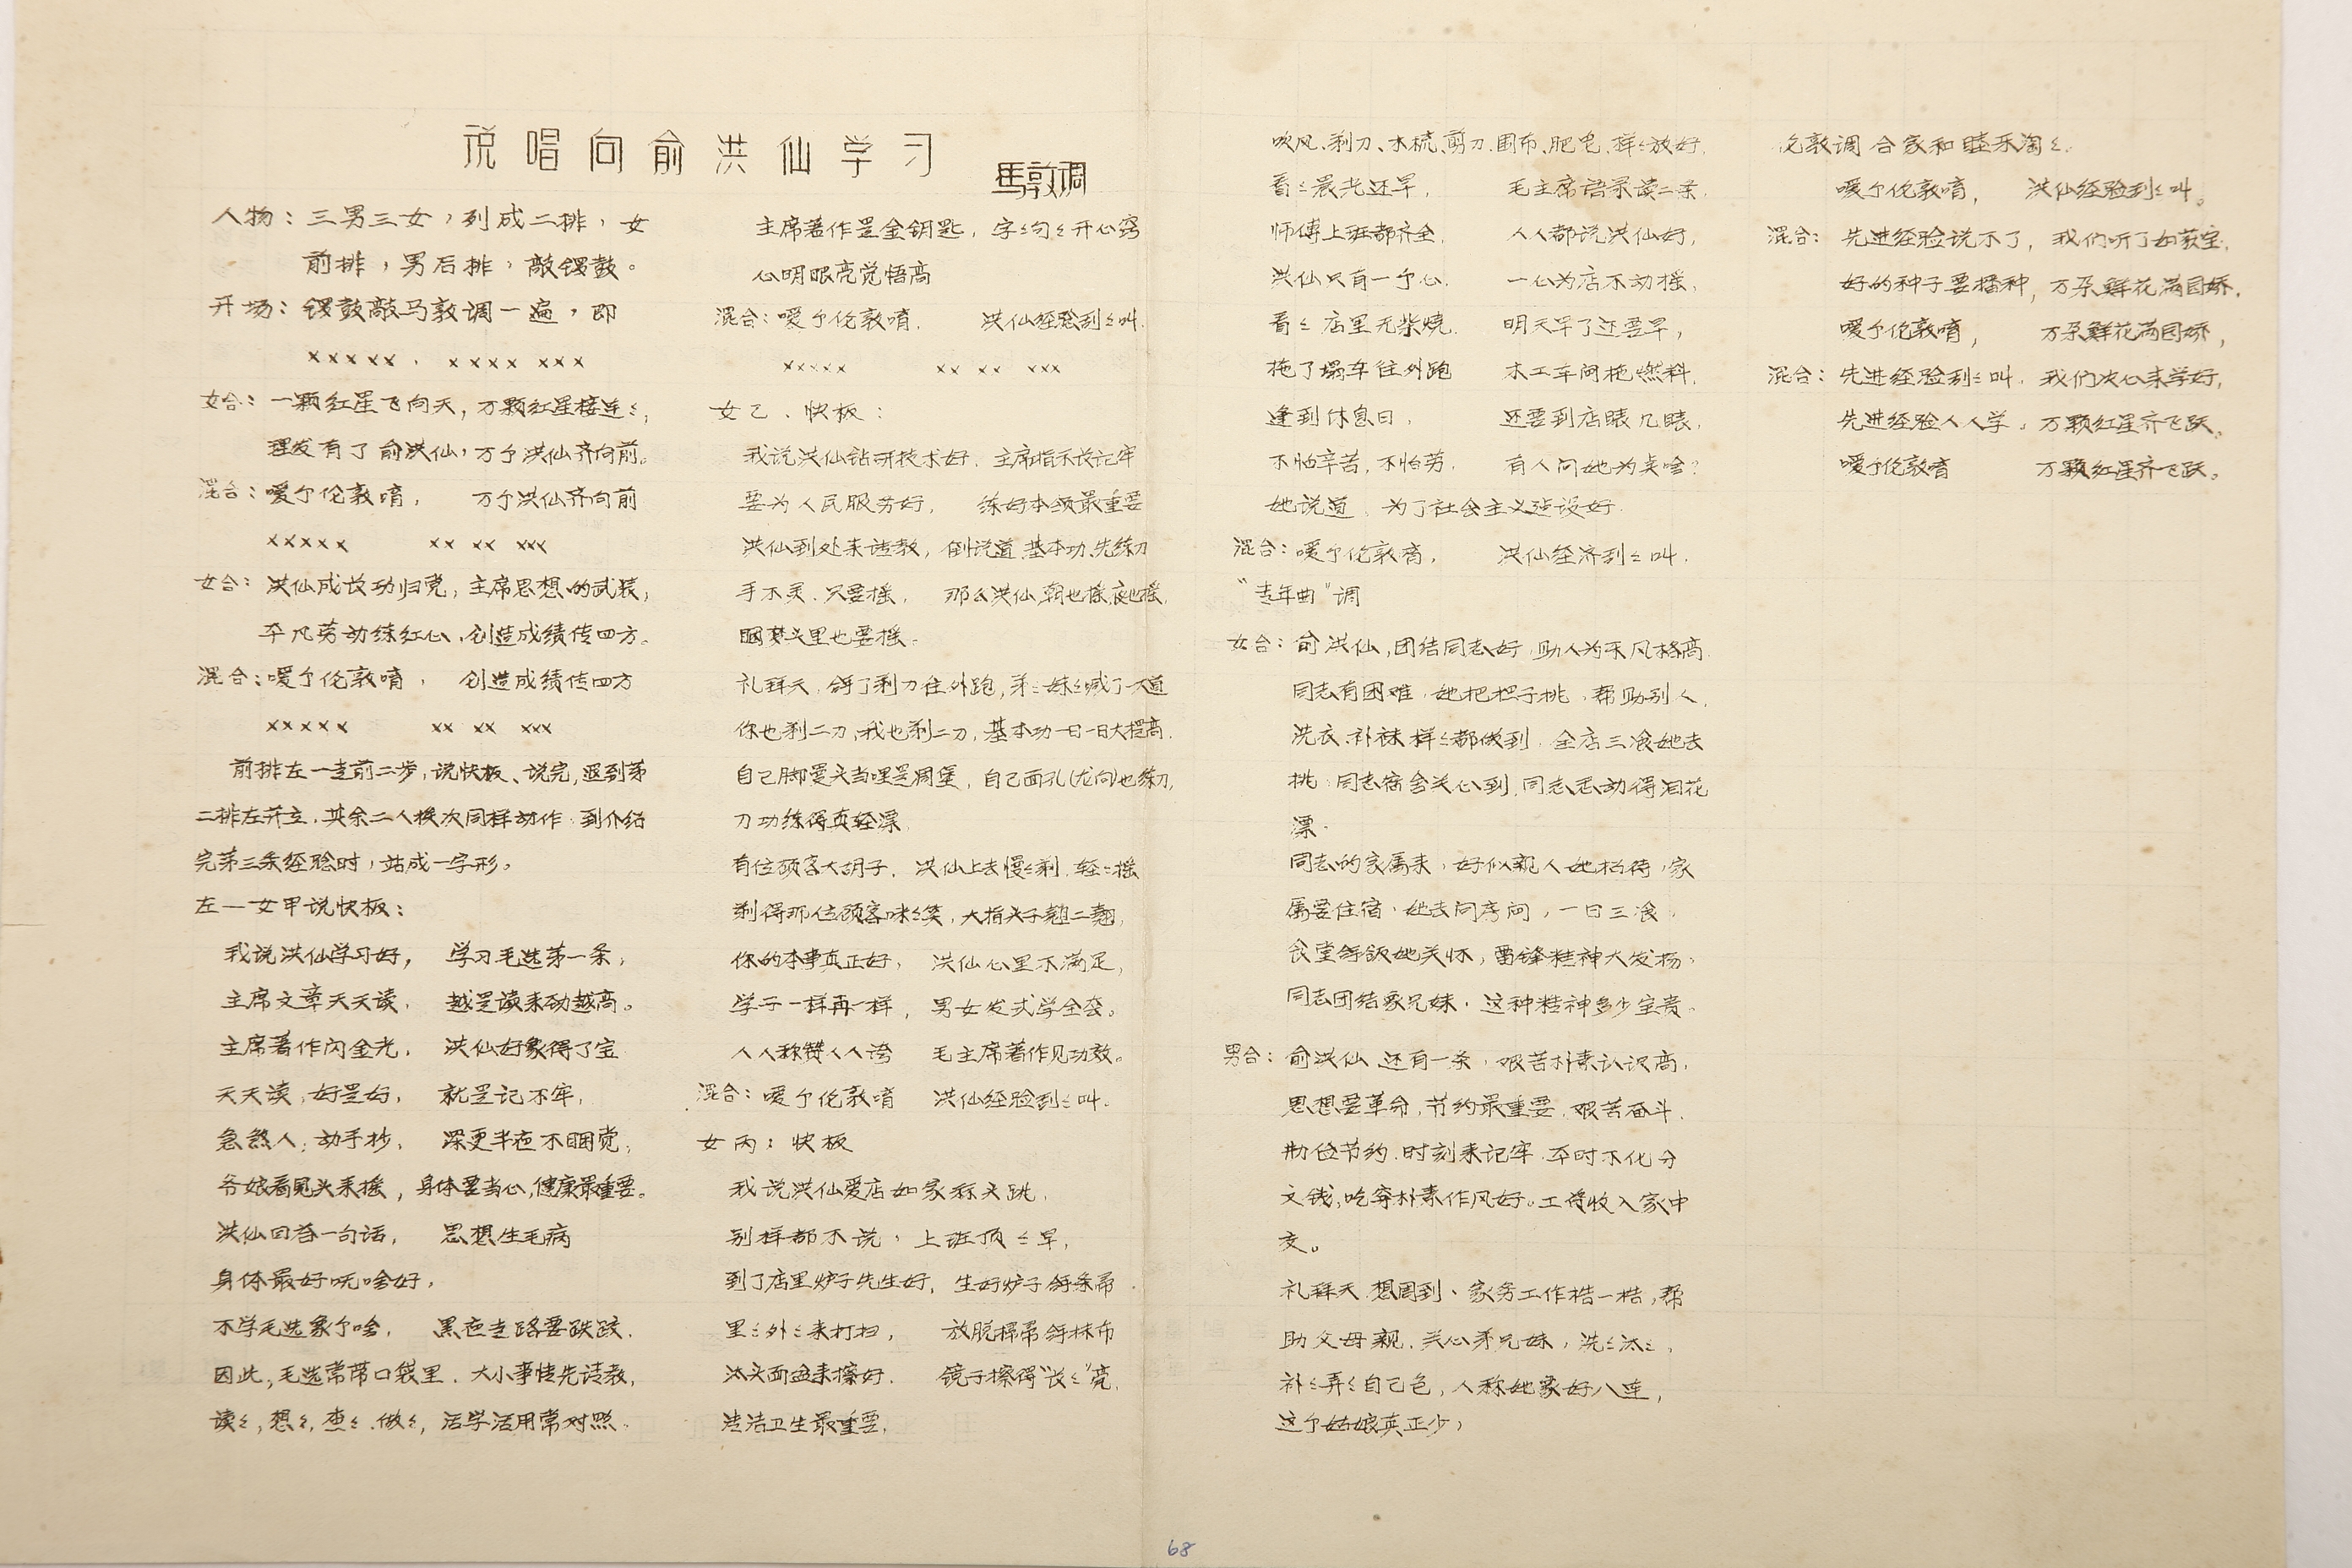 说唱向俞洪仙学习
馬敦调
人物：三男三女，列成二排，女
前排，男后排，敲锣鼓。
开场：锣鼓敲马敦调一遍，即
××××× . ×××× ×××
女合：一颗红星飞向天，万颗红星接连〻，
理发有了俞洪仙，万个洪仙齐向前。
混合：嗳个伦敦唷， 万个洪仙齐向前
××××× ×× ×× ×××
女合：洪仙成长功归党，主席思想的武装，
平凡劳动练红心，创造成绩传四方。
混合：嗳个伦敦唷， 创造成绩传四方
××××× ×× ×× ×××
前排左一走前二步，说快板、说完，退到第
二排左开立，其余二人挨次同样动作，到介绍
完第三条经验时，站成一字形。
左一女甲说快板：
我说洪仙学习好， 学习毛选第一条，
主席文章天天读， 越是读来劲越高。
主席著作闪金光， 洪仙好象得了宝
天天读，好是好， 就是记不牢，
急煞人，动手抄， 深更半夜不睏觉，
爷娘看见头来摇，身体要当心，健康最重要。
洪仙回答一句话， 思想生毛病
身体最好呒啥好，
不学毛选象个啥， 黑夜走路要跌跤．
因此，毛选常带口袋里．大小事情先请教，
读〻，想〻，查〻．做〻，活学活用常对照．
主席著作是金钥匙，字〻句〻开心窍
心明眼亮觉悟高
混合：嗳个伦敦唷． 洪仙经验刮〻叫．
××××× ×× ×× ×××
女乙．快板：
我说洪仙钻研技术好．主席指示长记牢
要为人民服务好， 练好本领最重要
洪仙到处来请教，倒说道，基本功，先练刀
手不灵．只要摇， 那么洪仙，朝也摇，夜也摇，
睏梦头里也要摇．
礼拜天，拿了剃刀往外跑，弟〻妹〻喊了一大道
你也剃二刀，我也剃二刀，基本功一日一日大提高．
自己脚馒头当哩是周堡，自己面孔(尤向)也练刀，
刀功练得真轻漂．
有位顾客大胡子．洪仙上去慢〻剃．轻〻摇
剃得那位顾客咪〻笑，大指头子翘二翘，
你的本事真正好， 洪仙心里不满足，
学子一样再一样，男女发式学全套。
人人称赞人人夸 毛主席著作见功效。
混合：嗳个伦敦唷 洪仙经验刮〻叫．
女丙：快板
我说洪仙爱店如家称头跳．
别样都不说，上班顶〻早，
到了店里炉子先生好，生好炉子拿条帚
里〻外〻来打扫， 放脱掃帚拿抹布
汰头面盆来擦好． 镜子擦得“长〻”亮．
法洁卫生最重要．
吹风、剃刀、木梳、剪刀．围布、肥皂，样〻放好．
看〻晨光还早， 毛主席语录读二条．
师傅上班都齐全． 人人都说洪仙好，
洪仙只有一个心． 一心为店不动摇，
看〻店里无柴烧． 明天早了还要早，
拖了塌车往外跑 木工车间拖燃料．
逢到休息日， 还要到店睩几睩，
不怕辛苦，不怕劳． 有人问她为美啥？
她说道，为了社会主义建设好．
混合：嗳个伦敦唷， 洪仙经济刮〻叫．
“青年曲”调
女合：俞洪仙，团结同志好，助人为乐风格高
同志有困难，她把担子挑，帮助别人．
洗衣、补袜样〻都做到．全店三飡她去
挑，同志宿舍关心到，同志感动得泪花
漂．
同志的家属来，好似亲人她招待，家
属要住宿，她去问房间，一日三飡，
食堂拿饭她关怀，雷锋精神大发扬，
同志团结象兄妹，这种精神多少宝贵．
男合：俞洪仙，还有一条，艰苦朴素认识高，
思想要革命，节约最重要，艰苦奋斗．
勤俭节约．时刻来记牢．平时不化分
文钱，吃穿朴素作风好。工资收入家中
交。
礼拜天，想周到、家务工作梏一梏，帮
助父母亲．关心弟兄妹，洗〻汰〻，
补〻弄〻自己包，人称她象好八连，
这个姑娘真正少，
伦敦调 合家和睦乐淘〻．
嗳个伦敦唷， 洪仙经验刮〻叫。
混合：先进经验说不了，我们听了如获宝．
好的种子要播种，万朵鲜花满园娇．
嗳个伦敦唷， 万朵鲜花满园娇，
混合：先进经验刮〻叫．我们决心来学好，
先进经验人人学，万颗红星齐飞跃。
嗳个伦敦唷 万颗红星齐飞跃。
68